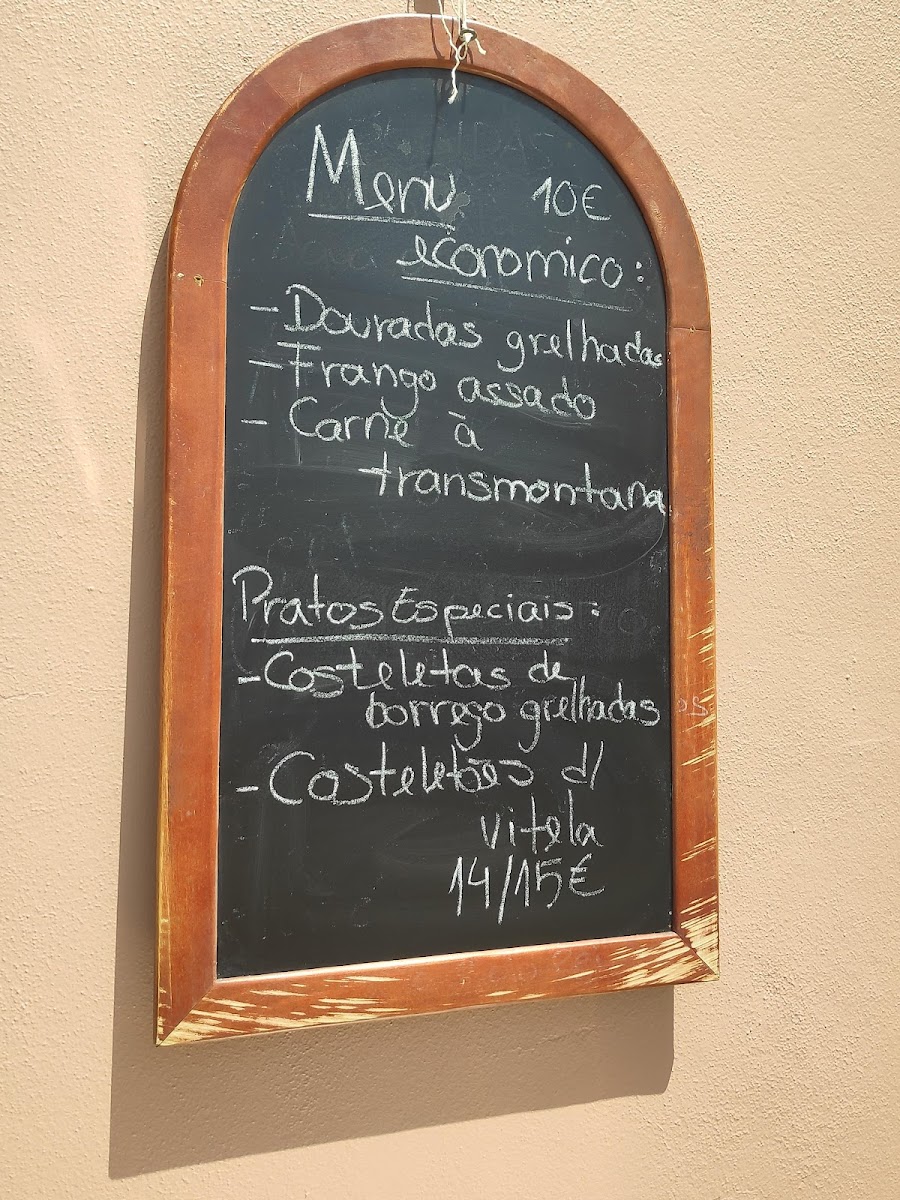 Menu 10€
economico:
- Douradas grelhadas
- Frango assado
- Carne à
transmontana
Pratos Especiais:
- Costeletas de
borrego grelhadas
- Costeletões d/
vitela
14/15€